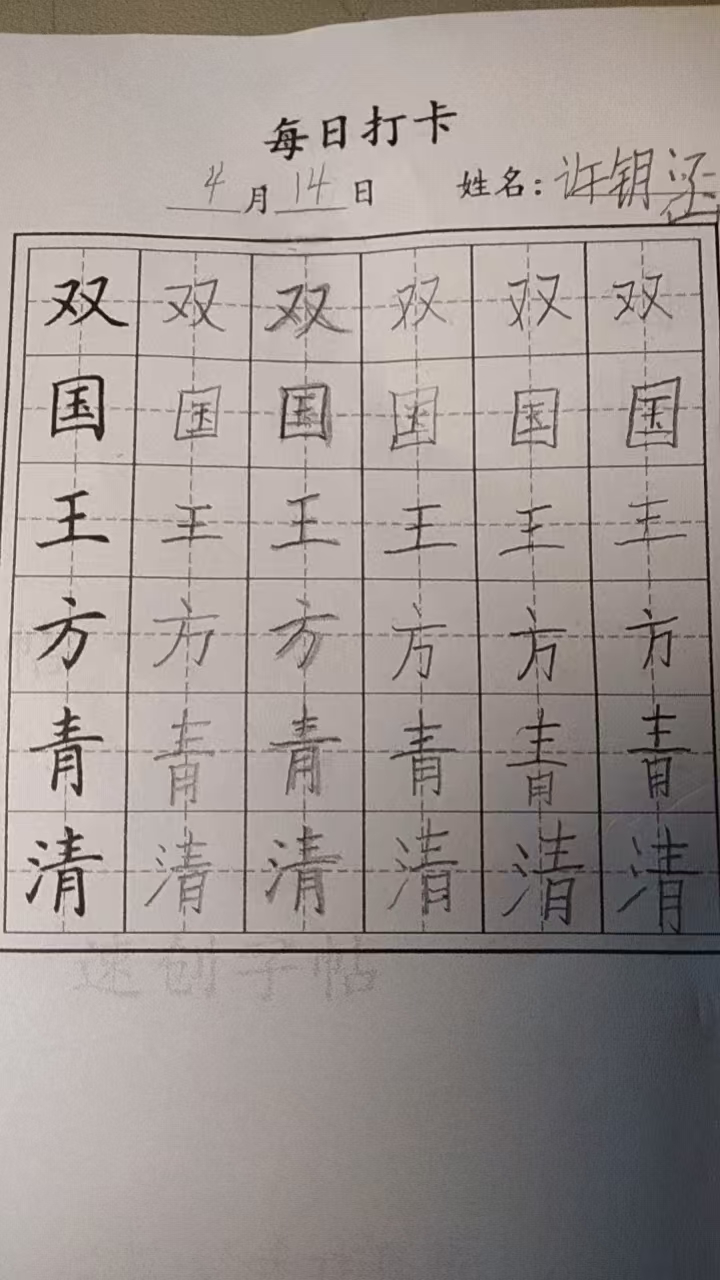 每日打卡
4月14日 姓名：许钥涵
双 双 双 双 双 双
国 国 国 国 国 国
王 王 王 王 王 王
方 方 方 方 方 方
青 青 青 青 青 青
清 清 清 清 清 清
速创字帖